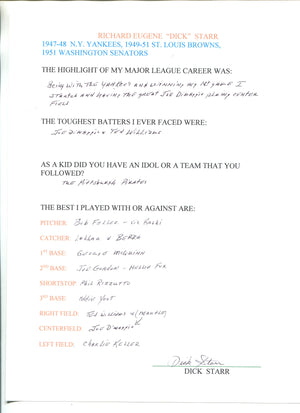 RICHARD EUGENE "DICK" STARR
1947-48 N.Y. YANKEES, 1949-51 ST. LOUIS BROWNS,
1951 WASHINGTON SENATORS
THE HIGHLIGHT OF MY MAJOR LEAGUE CAREER WAS:
Being with the Yankees and winning my 1st game I
started and having the great Joe Dimaggio playing center
field
THE TOUGHEST BATTERS I EVER FACED WERE:
Joe Dimaggio & Ted Williams
AS A KID DID YOU HAVE AN IDOL OR A TEAM THAT YOU
FOLLOWED?
The Pittsburgh Pirates
THE BEST I PLAYED WITH OR AGAINST ARE:
PITCHER: Bob Feller - Vic Raschi
CATCHER: & Berra
1ST BASE: George McQuinn
2ND BASE: Joe Gordon - Nellie Fox
SHORTSTOP: Phil Rizzuto
3RD BASE: Eddie Yost
RIGHT FIELD: Ted Williams
CENTERFIELD: Joe Dimaggio
LEFT FIELD: Charlie Keller
Dick Starr
DICK STARR